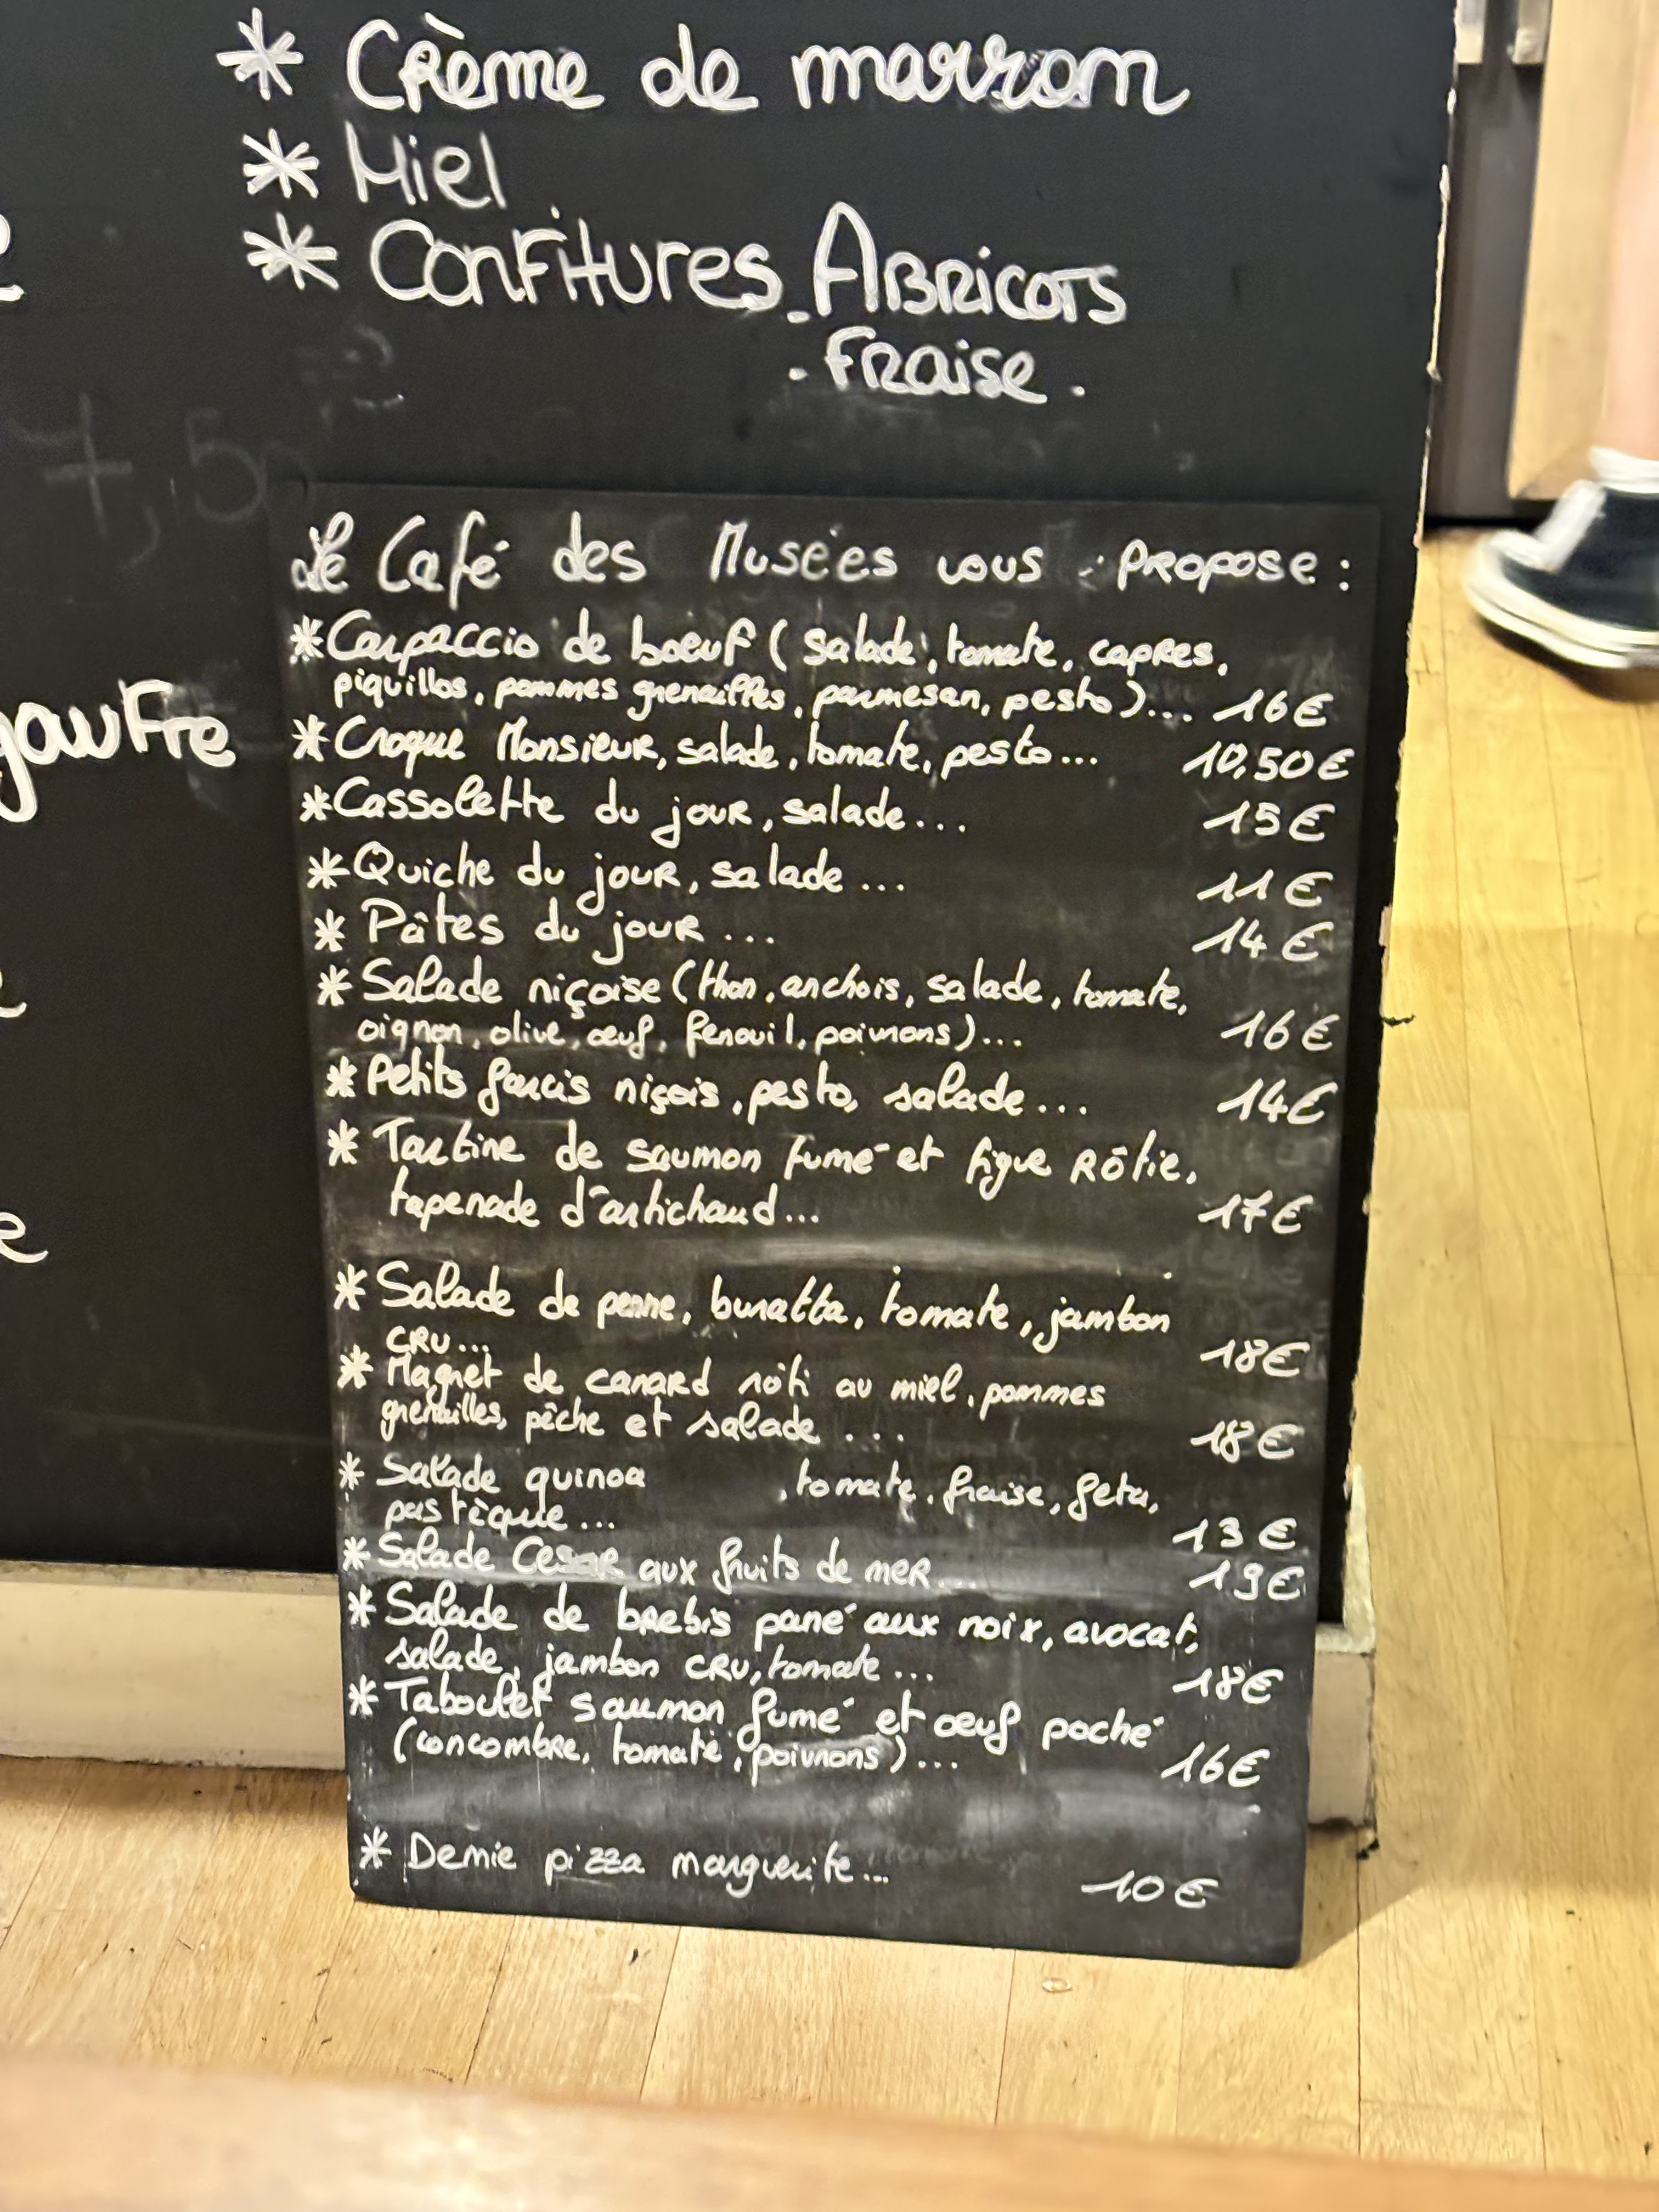 * Crème de marron
* Miel
* Confitures. Abricots
. Fraise.
gaufre
Le Café des Musées vous propose :
* Carpaccio de boeuf ( salade, tomate, capres,
piquillos, pommes grenailles, parmesan, pesto )... 16€
* Croque Monsieur, salade, tomate, pesto... 10,50€
* Cassolette du jour, salade... 15€
* Quiche du jour, salade... 11€
* Pâtes du jour... 14€
* Salade niçoise (thon, anchois, salade, tomate,
oignon, olive, œuf, fenouil, poivrons)... 16€
* Petits farcis niçois, pesto, salade... 14€
* Tartine de saumon fumé et figue rôtie,
tapenade d'artichaud... 17€
* Salade de penne, buratta, tomate, jambon
cru... 18€
* Magret de canard rôti au miel, pommes
grenailles, pêche et salade ... 18€
* Salade quinoa , tomate, fraise, feta,
pastèque... 13€
* Salade Cesar aux fruits de mer... 19€
* Salade de brebis pané aux noix, avocat,
salade, jambon cru, tomate... 18€
* Taboulet saumon fumé et oeuf poché
(concombre, tomate, poivrons)... 16€
* Demie pizza marguerite... 10€